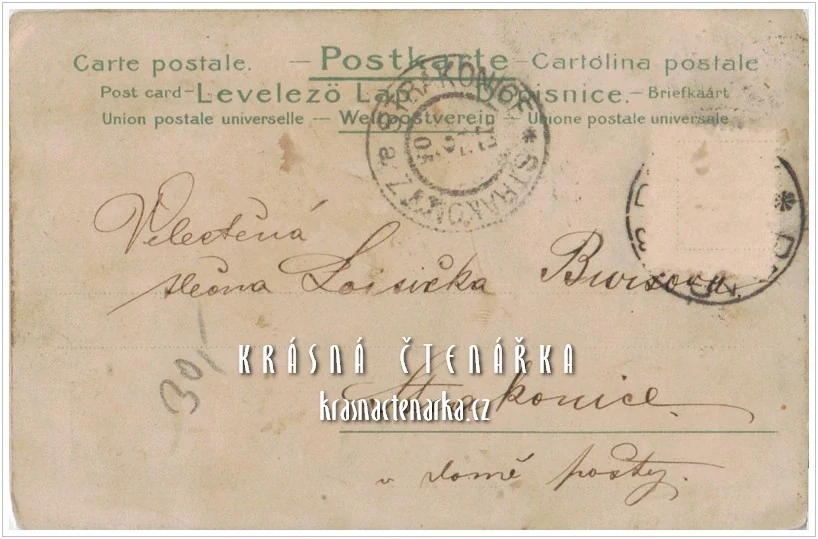 Carte postale. — Postkarte — Cartolina postale
Post card — Levelezö Lap. — Dopisnice. — Briefkaart
Union postale universelle — Weltpostverein — Unione postale universale
STRAKONICE * STRAKONITZ a
Velectěná
slečna Loisička
30/-
KRÁSNÁ ČTENÁŘKA
krasnactenarka.cz
Strakonice.
v domě pošty.